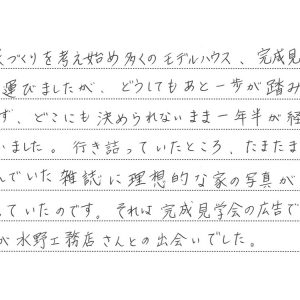 づくりを考え始め多くのモデルハウス、完成見
運びましたが、どうしてもあと一歩が踏み
ず、どこにも決められないまま一年半が経
いました。行き詰っていたところ、たまたま
んでいた雑誌に理想的な家の写真が
ていたのです。それは完成見学会の広告で
が水野工務店さんとの出会いでした。